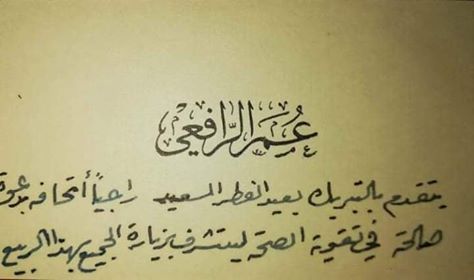 عمر الرافعي
يتقدم بالتبريك بعيد الفطر السعيد راجياً اتحافه بدعوة
صالحة في تقوية الصحة ليتشرف بزيارة الجميع بهذا الربيع